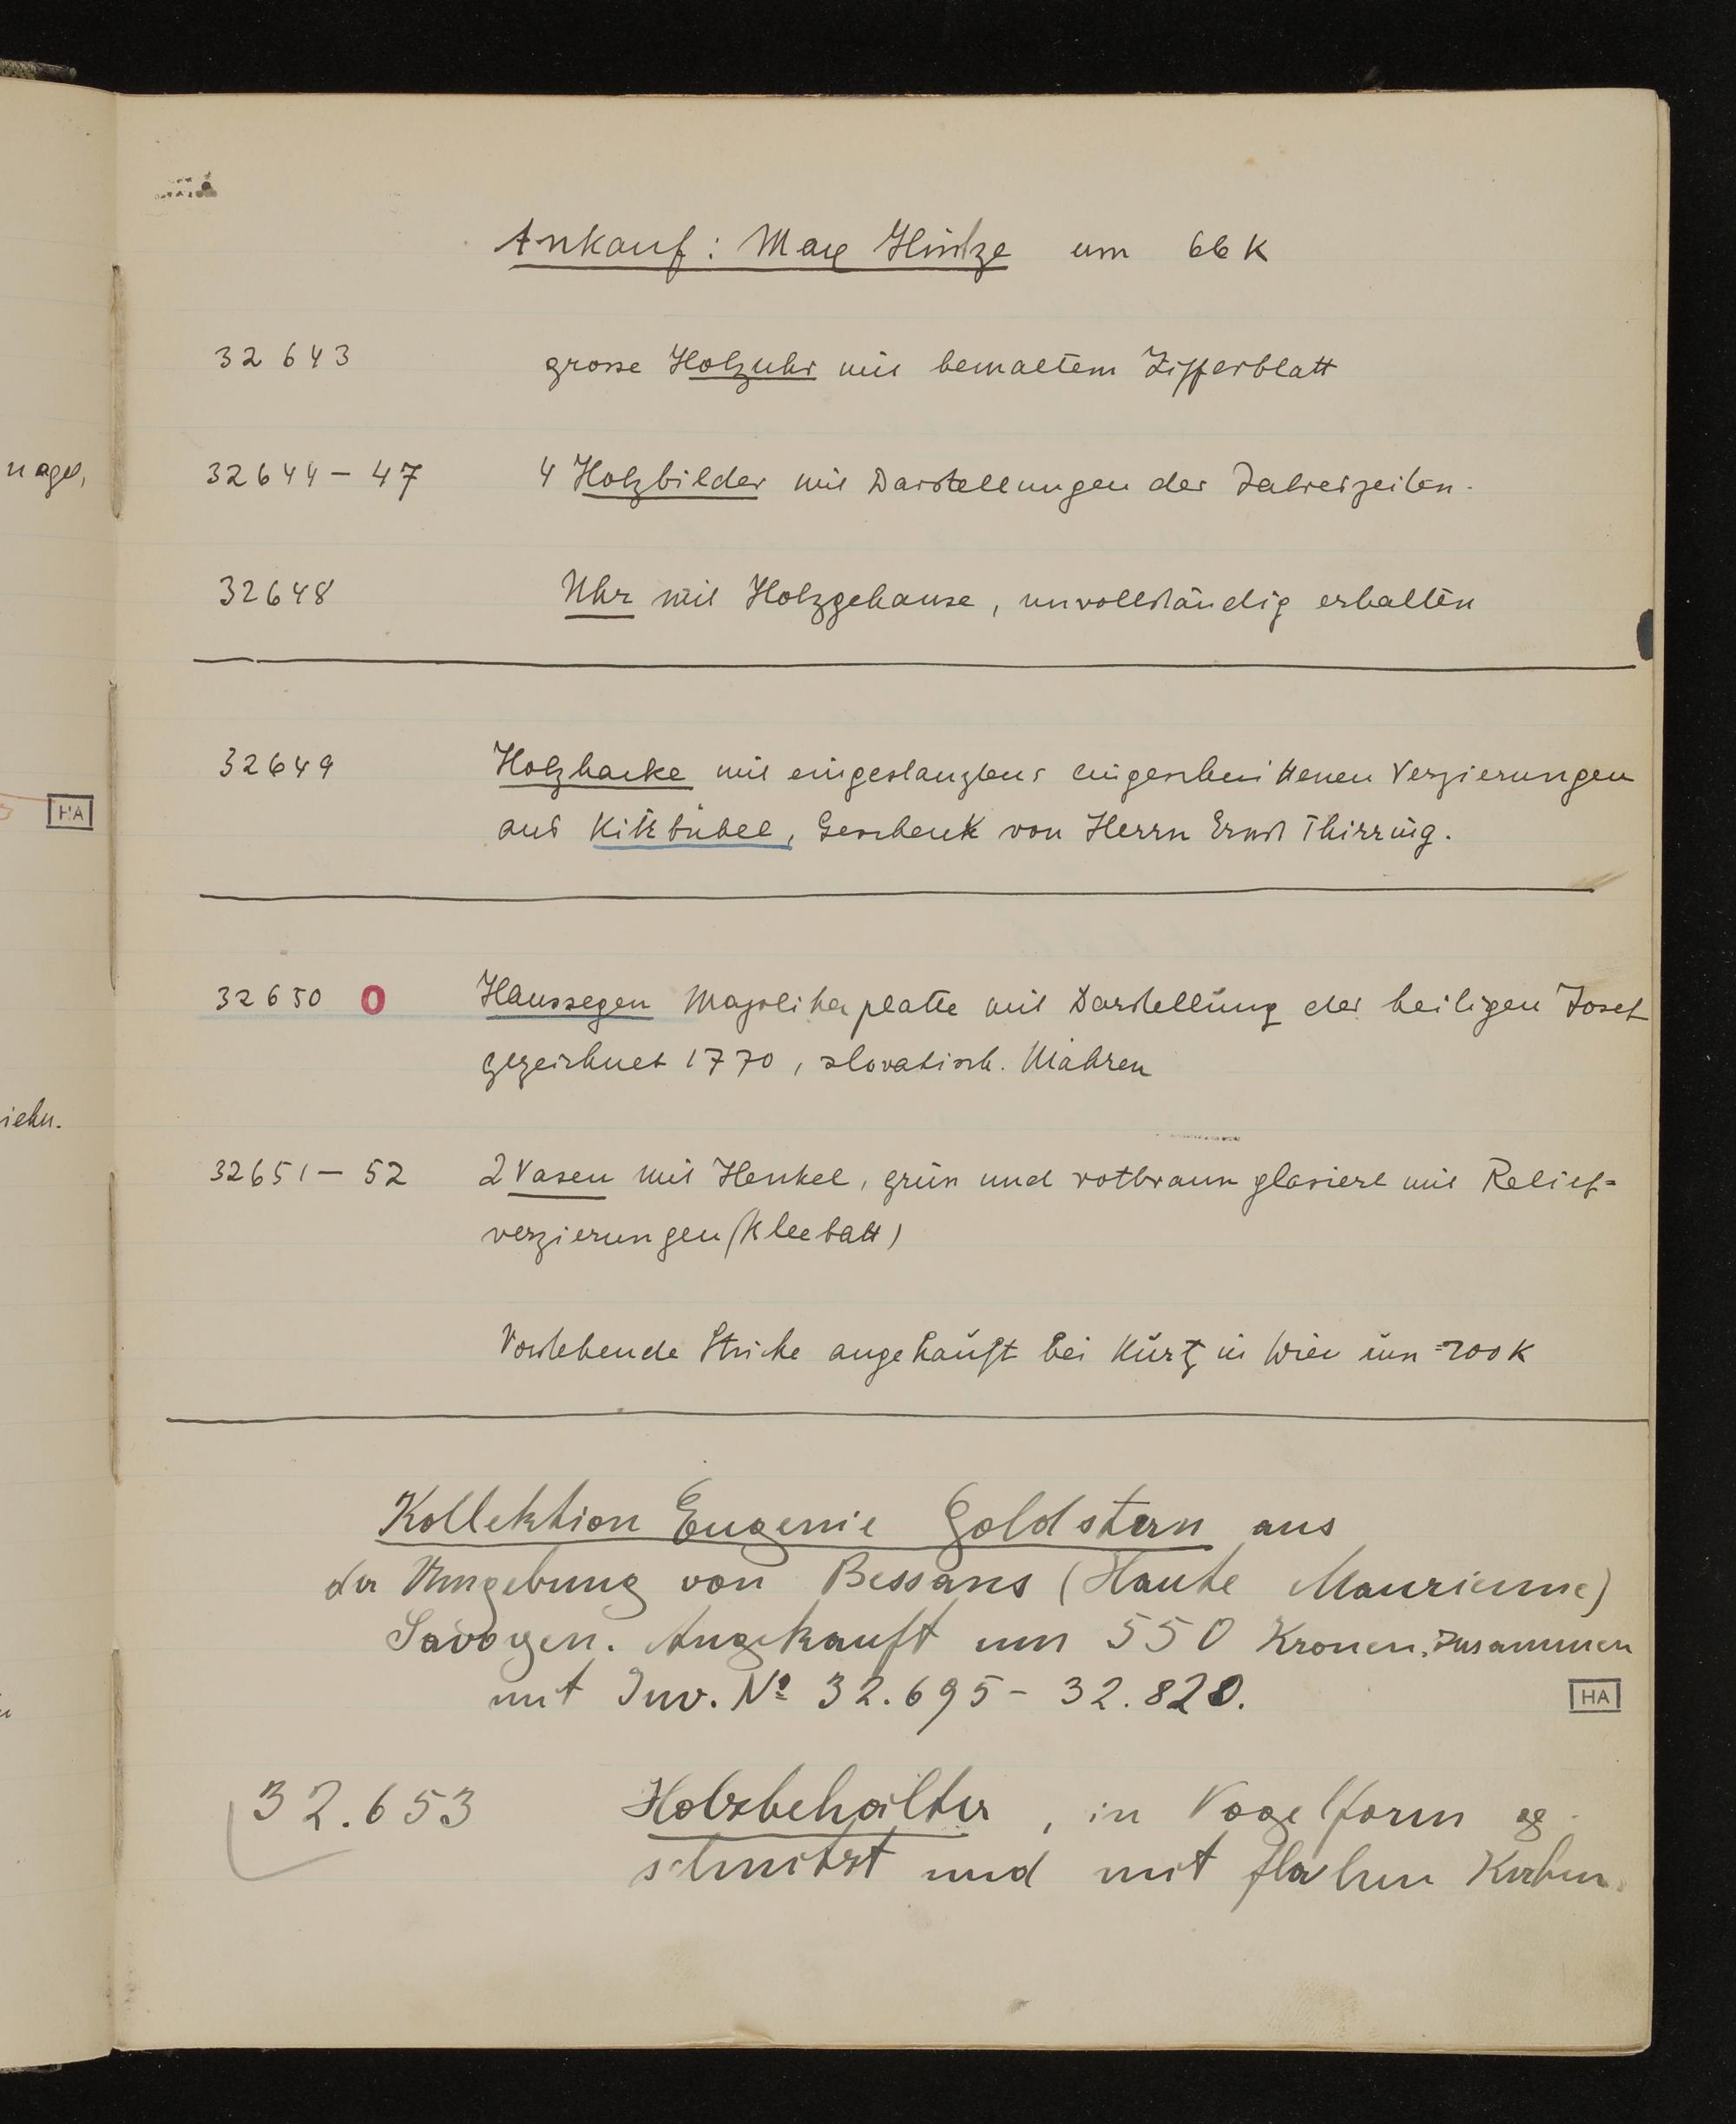 Ankauf: Max Hintze um 66 K
32643 grosse Holzuhr mit bemaltem Zifferblatt
nagel,
32644 – 47 4 Holzbilder mit Darstellungen der Jahreszeiten.
32648 Uhr mit Holzgehause, unvollständig erhalten
32649 Holzhacke mit eingestanzten eingeschnittenen Verzierungen
HA
aus Kitzbübel, Geschenk von Herrn Ernst Thirring.
32650 O Haussegen Majolikaplatte mit Darstellung des heiligen Josef
gezeichnet 1770, slovakisch. Mähren
iehn.
32651 – 52 2 Vasen mit Henkel, grün und rotbraun glasiert mit Relief=
verzierungen (Kleebatt)
Vorstehende Stücke angekauft bei Kurtz in Wien um 200 K
Kollektion Eugenie Goldstern aus
der Umgebung von Bessans (Haute Maurienne)
Savoyen. Angekauft um 550 Kronen. zusammen
mit Inv. No 32.695 – 32.820.
HA
32.653 Holzbehälter, in Vogelform ge-
schnitzt und mit flachen Kerben.